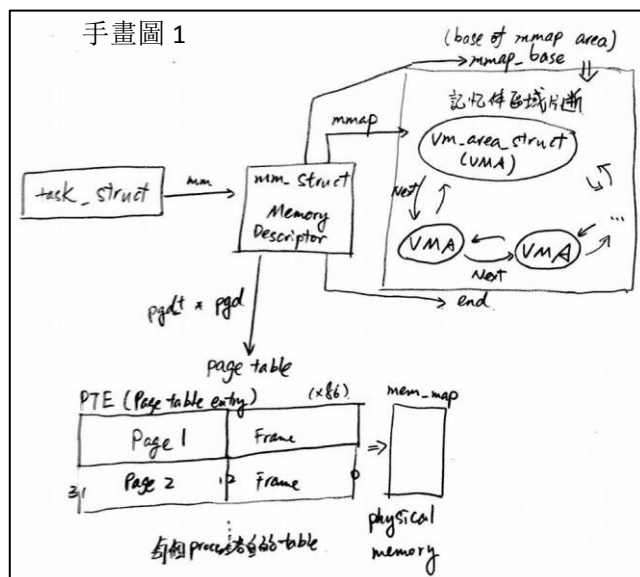 手畫圖 1
(base of mmap area)
mmap_base
記忆体区域片断
mmap
vm_area_struct
(VMA)
task_struct
mm
mm_struct
Memory
Descriptor
Next
...
VMA
VMA
Next
end
pgd_t * pgd
page table
PTE (Page table entry)
(x86)
mem_map
Page 1
Frame
Page 2
Frame
31
12
0
physical
memory
process
table